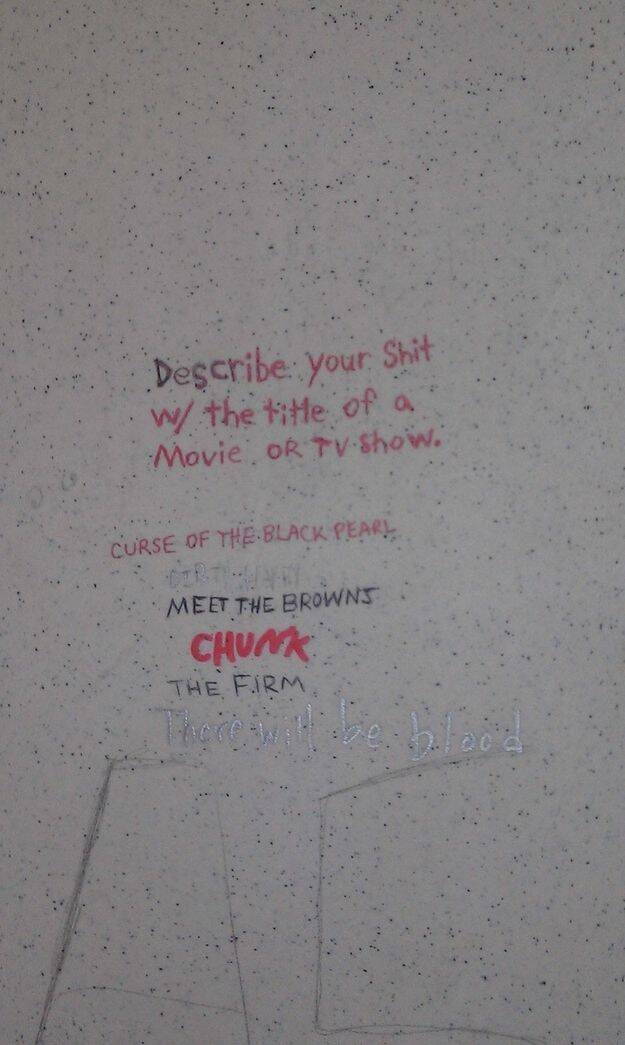 Describe your Shit
w/ the title of a
Movie OR TV show.
CURSE OF THE BLACK PEARL
MEET THE BROWNS
CHUNK
THE FIRM
There will be blood